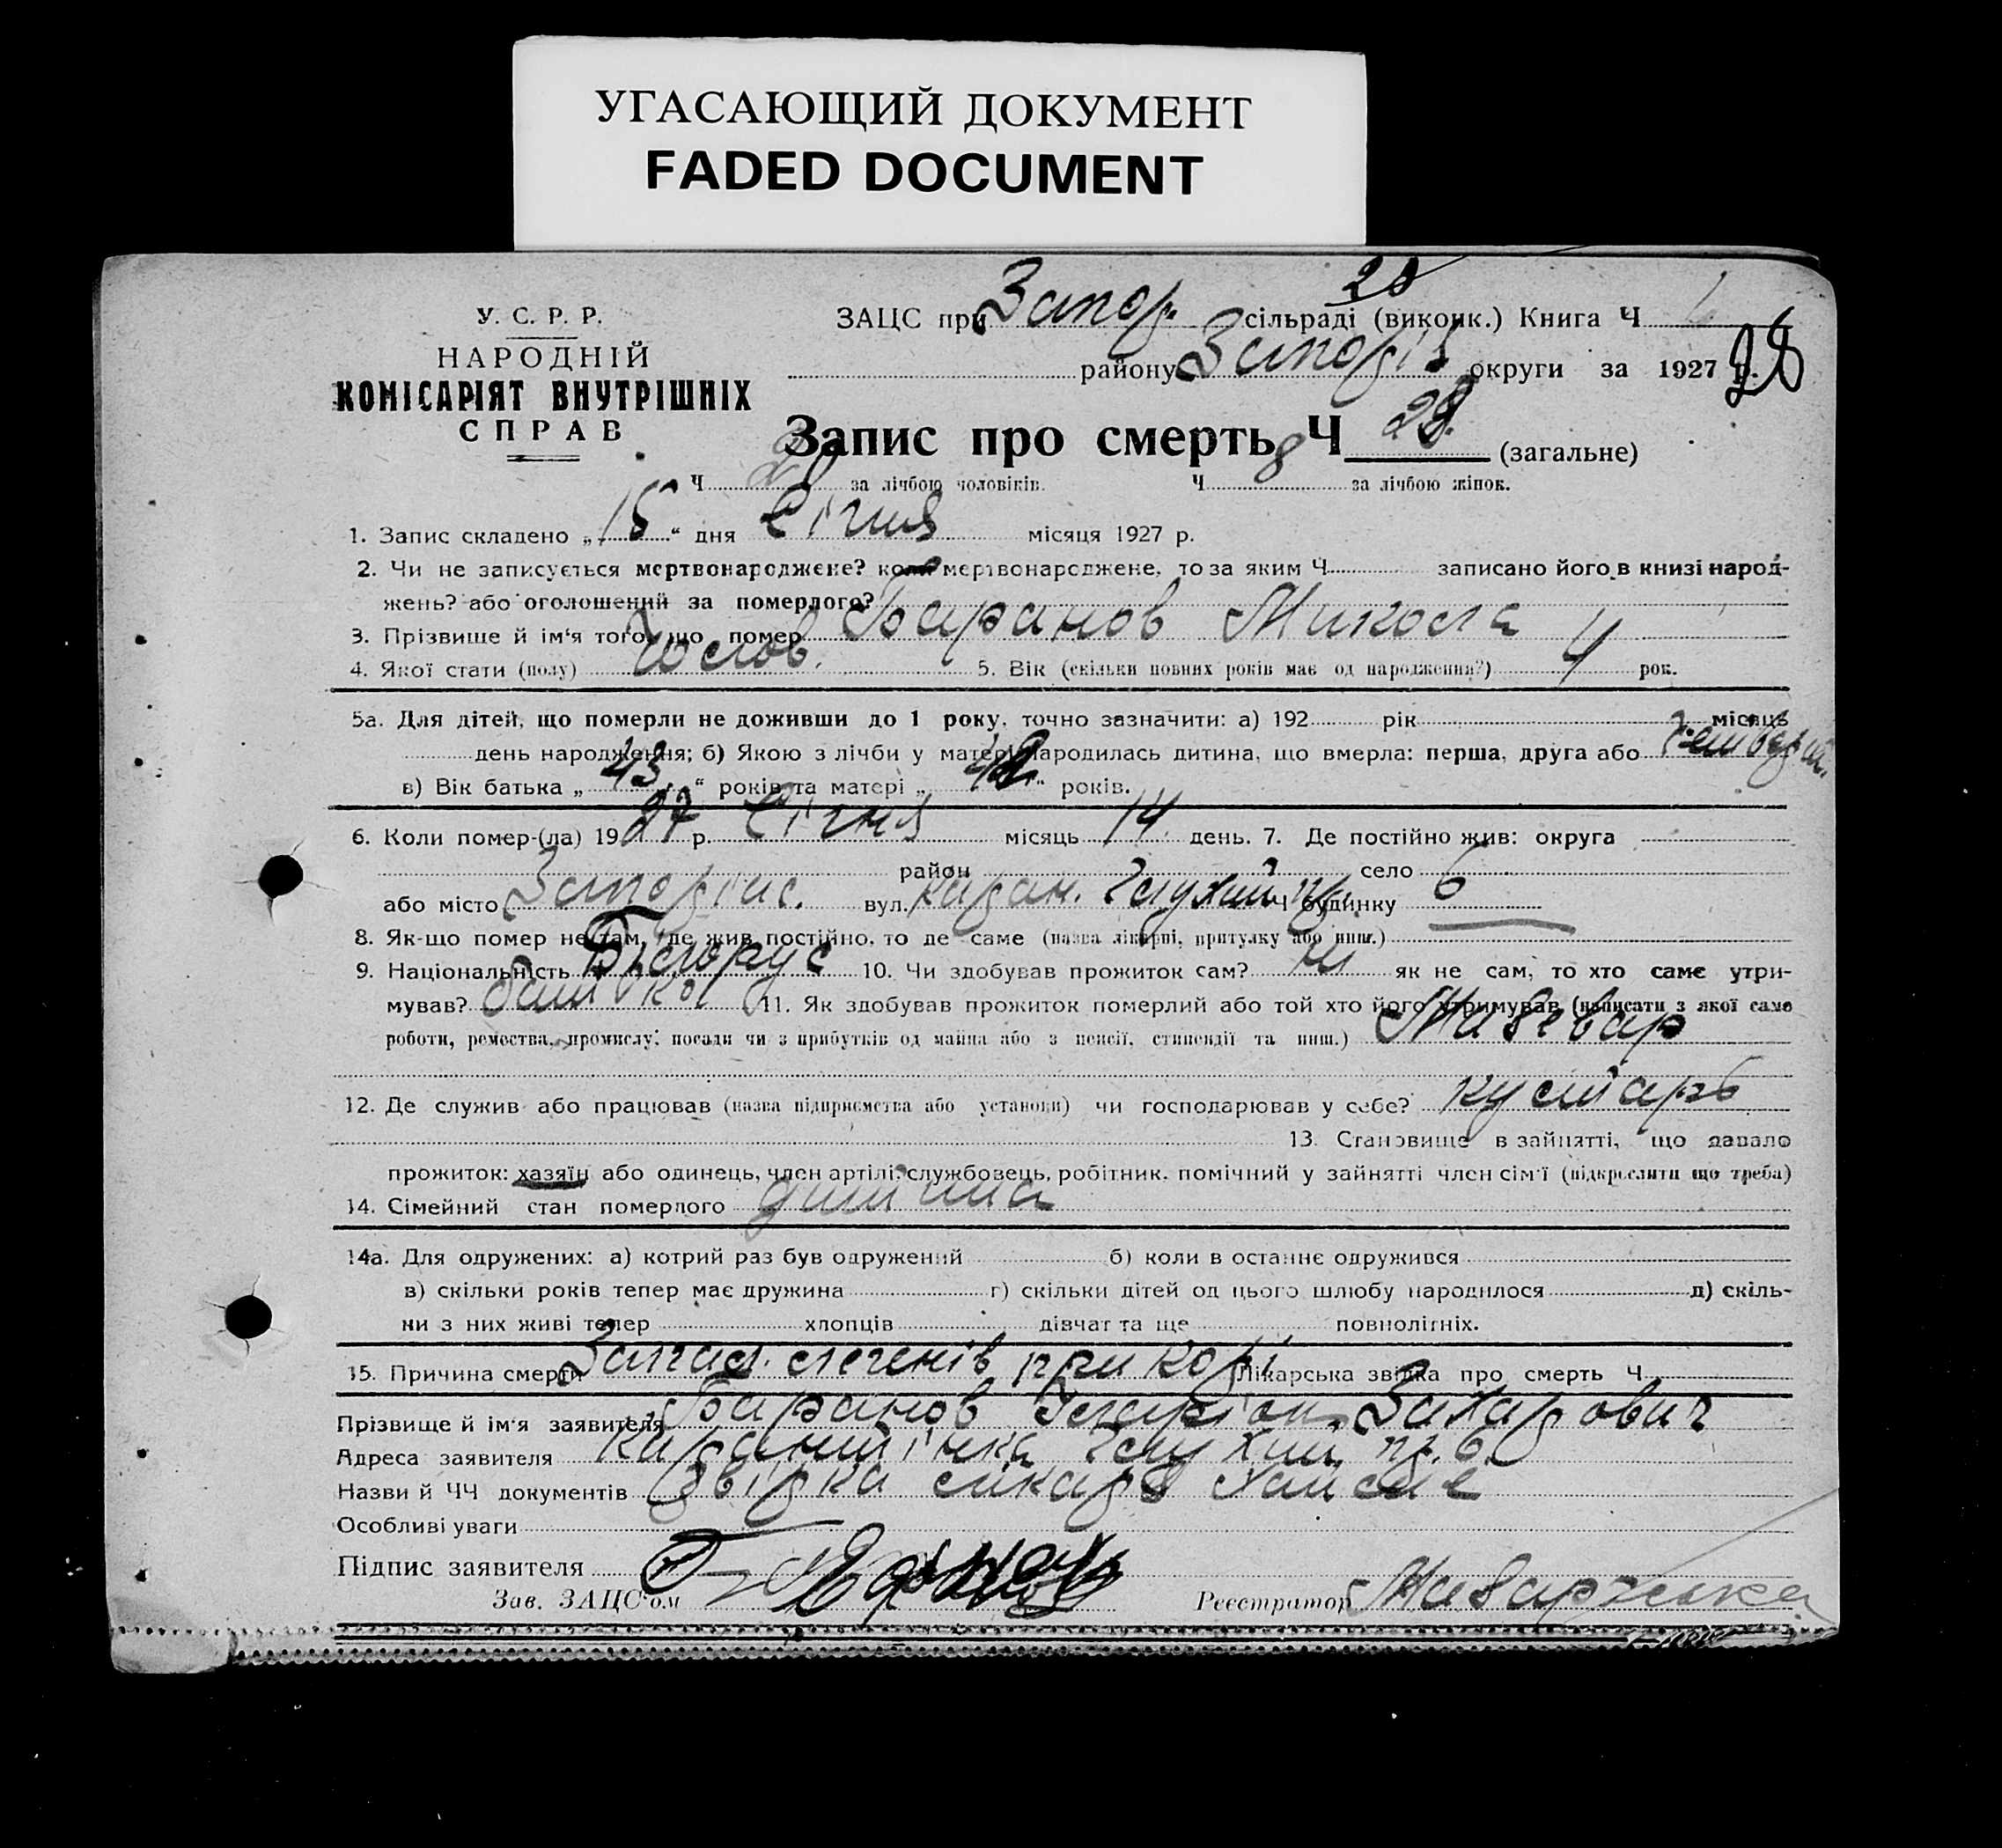 УГАСАЮЩИЙ ДОКУМЕНТ
FADED DOCUMENT
У. С. Р. Р.
НАРОДНІЙ
КОМІСАРІЯТ ВНУТРІШНІХ
СПРАВ
28
ЗАЦС при Запор. сільраді (виконк.) Книга Ч
району Запоріз округи за 1927 р. 28
Запис про смерть Ч 28 (загальне)
Ч 20 за лічбою чоловіків. Ч 8 за лічбою жінок.
1. Запис складено „15“ дня Січня місяця 1927 р.
2. Чи не записується мертвонароджене? коли мертвонароджене, то за яким Ч записано його в книзі народ-
жень? або оголошений за померлого?
3. Прізвище й ім'я того, що помер Баранов Микола
4. Якої стати (полу) Чолов. 5. Вік (скільки повних років має од народження?) 4 рок.
5а. Для дітей, що померли не доживши до 1 року, точно зазначити: а) 192 рік місяць
день народження; б) Якою з лічби у матері народилась дитина, що вмерла: перша, друга або четверта.
в) Вік батька „43“ років та матері „42“ років.
6. Коли помер-(ла) 1927 р. Січня місяць 14 день. 7. Де постійно жив: округа
район село
або місто Запоріжс. вул. Каран. Глухий пр. Ч будинку 6
8. Як-що помер не там, де жив постійно, то де саме (назва лікарні, притулку або инш.)
9. Національність Білорус 10. Чи здобував прожиток сам? ні як не сам, то хто саме утри-
мував? батько 11. Як здобував прожиток померлий або той хто його утримував (написати з якої саме
роботи, ремества, промислу, посади чи з прибутків од майна або з пенсії, стипендії та инш.)
12. Де служив або працював (назва підприємства або установи) чи господарював у себе? кустарь
13. Становище в зайнятті, що давало
прожиток: хазяїн або одинець, член артілі, службовець, робітник, помічний у зайнятті член сім'ї (підкреслити що треба)
14. Сімейний стан померлого дитина
14а. Для одружених: а) котрий раз був одружений б) коли в останнє одружився
в) скільки років тепер має дружина г) скільки дітей од цього шлюбу народилося д) скіль-
ки з них живі тепер хлопців дівчат та ще повнолітніх.
15. Причина смерти Запал. легенів при корі Лікарська звідка про смерть Ч
Прізвище й ім'я заявителя Баранов Іларіон Захарович
Адреса заявителя Карантинка Глухий пр. 6
Назви й ЧЧ документів Звідка лікаря
Особливі уваги
Підпис заявителя
Зав. ЗАЦС'ом Реєстратор